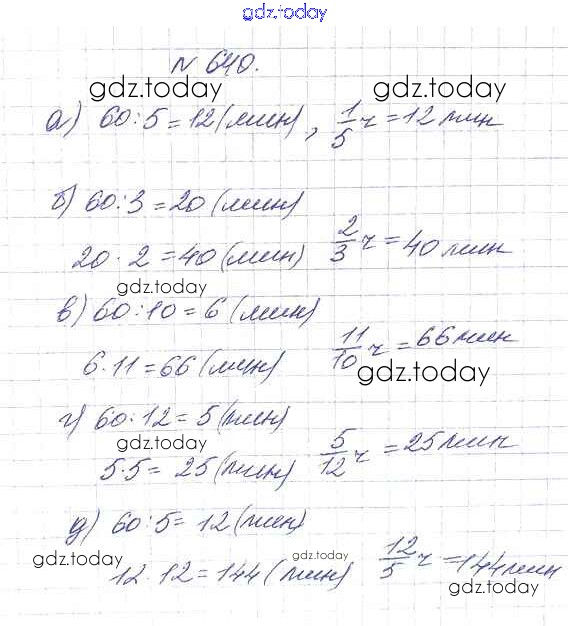 gdz.today
№ 640.
gdz.today gdz.today
а) 60:5=12(мин), 1/5 ч=12 мин
б) 60:3=20(мин)
20·2=40(мин) 2/3 ч=40 мин
gdz.today
в) 60:10=6(мин)
6·11=66(мин) 11/10 ч=66 мин
gdz.today
г) 60:12=5(мин)
gdz.today
5·5=25(мин) 5/12 ч=25 мин
д) 60:5=12(мин)
gdz.today gdz.today
12·12=144(мин) 12/5 ч=144 мин
gdz.today